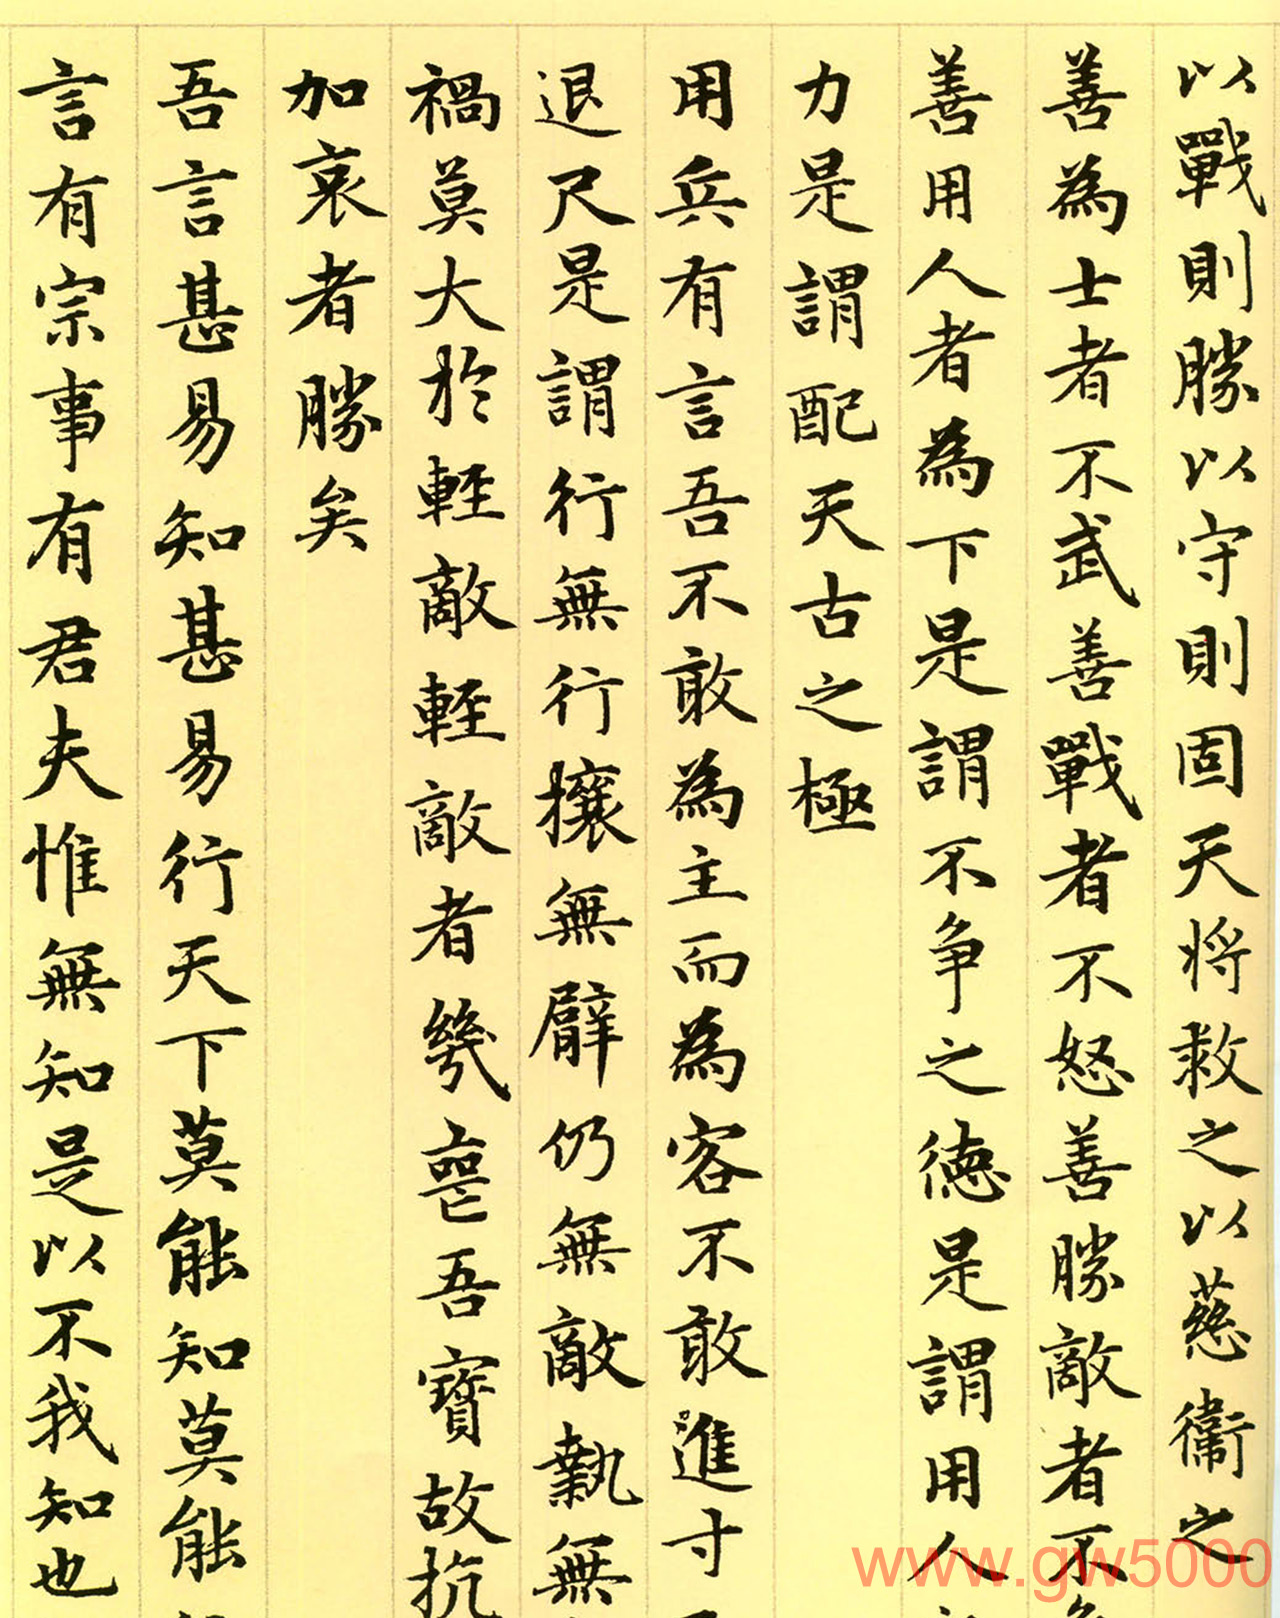 以戰則勝以守則固天將救之以慈衞之
善為士者不武善戰者不怒善勝敵者不
善用人者為下是謂不争之德是謂用人
力是謂配天古之極
用兵有言吾不敢為主而為客不敢進寸
退尺是謂行無行攘無臂仍無敵執無
禍莫大於輕敵輕敵者幾喪吾寶故抗
加哀者勝矣
吾言甚易知甚易行天下莫能知莫能
言有宗事有君夫惟無知是以不我知也
www.gw5000